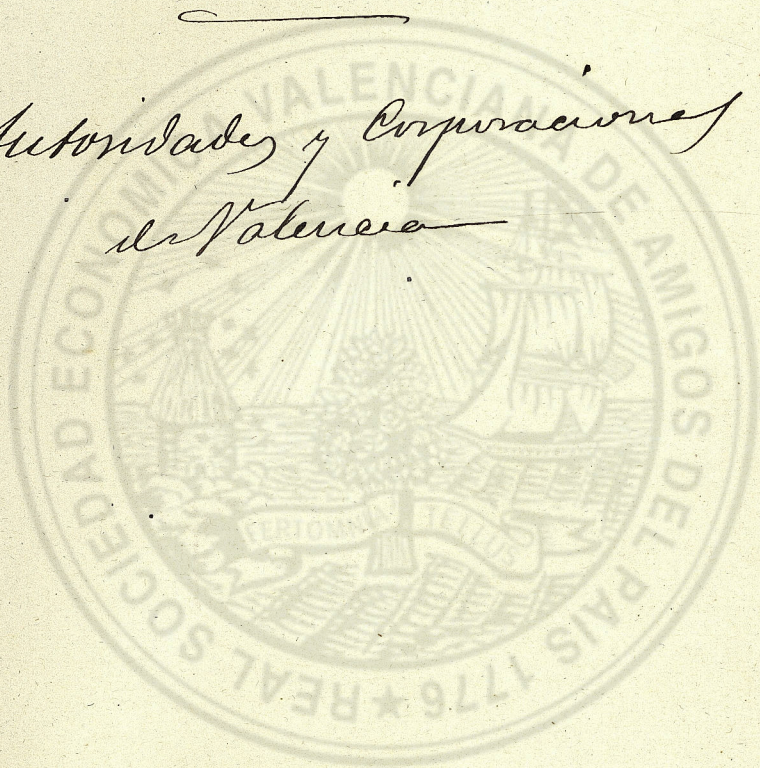 Autoridades y Corporaciones
de Valencia
REAL SOCIEDAD ECONOMICA VALENCIANA DE AMIGOS DEL PAIS 1776 ★
FERT OMNIA TELLUS